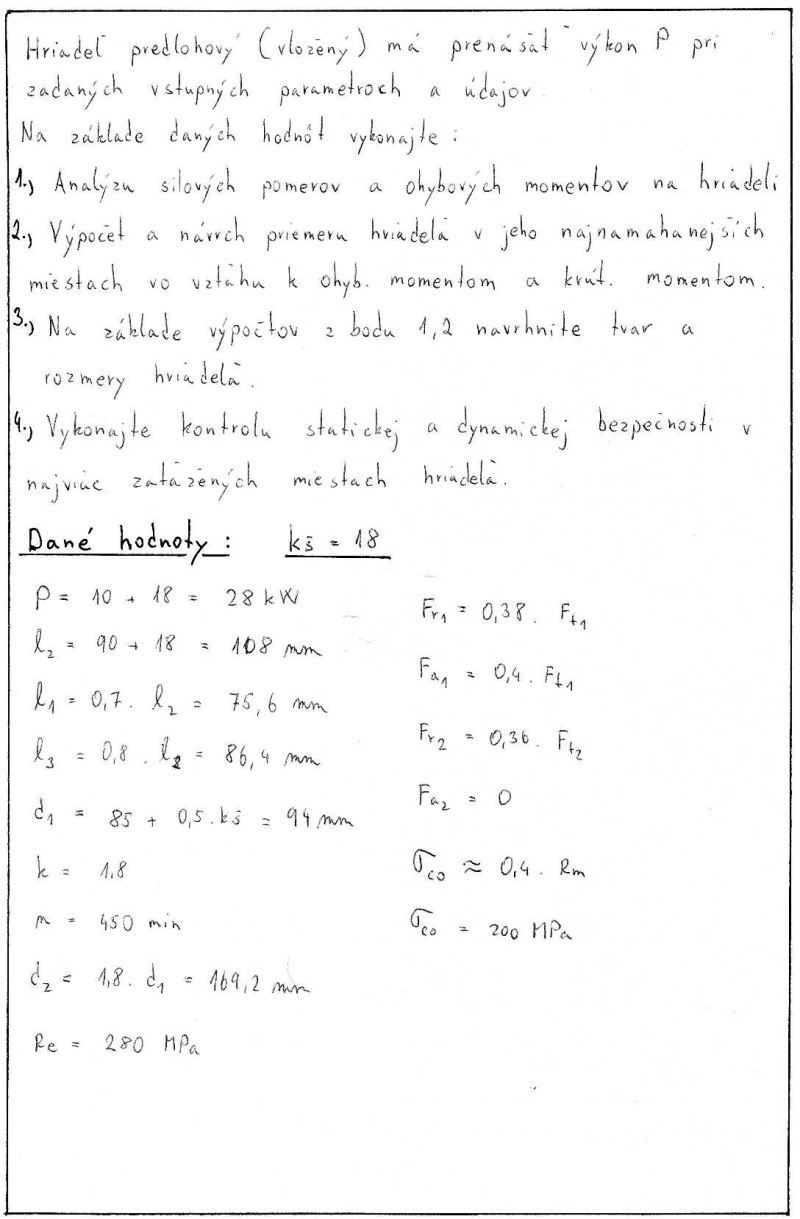 Hriadeľ predlohový (vložený) má prenášať výkon P pri
zadaných vstupných parametroch a údajov.
Na základe daných hodnôt vykonajte :
1.) Analýzu silových pomerov a ohybových momentov na hriadeli
2.) Výpočet a návrh priemeru hriadeľa v jeho najnamahanejších
miestach vo vzťahu k ohyb. momentom a krút. momentom.
3.) Na základe výpočtov z bodu 1,2 navrhnite tvar a
rozmery hriadeľa.
4.) Vykonajte kontrolu statickej a dynamickej bezpečnosti v
najviac zaťažených miestach hriadeľa.
Dané hodnoty : kš = 18
P = 10 + 18 = 28 kW
l₂ = 90 + 18 = 108 mm
l₁ = 0,7 . l₂ = 75,6 mm
l₃ = 0,8 . l₂ = 86,4 mm
d₁ = 85 + 0,5 . kš = 94 mm
k = 1,8
n = 450 min
d₂ = 1,8 . d₁ = 169,2 mm
Re = 280 MPa
Fr₁ = 0,38 . Ft₁
Fa₁ = 0,4 . Ft₁
Fr₂ = 0,36 . Ft₂
Fa₂ = 0
σco ≈ 0,4 . Rm
σco = 200 MPa